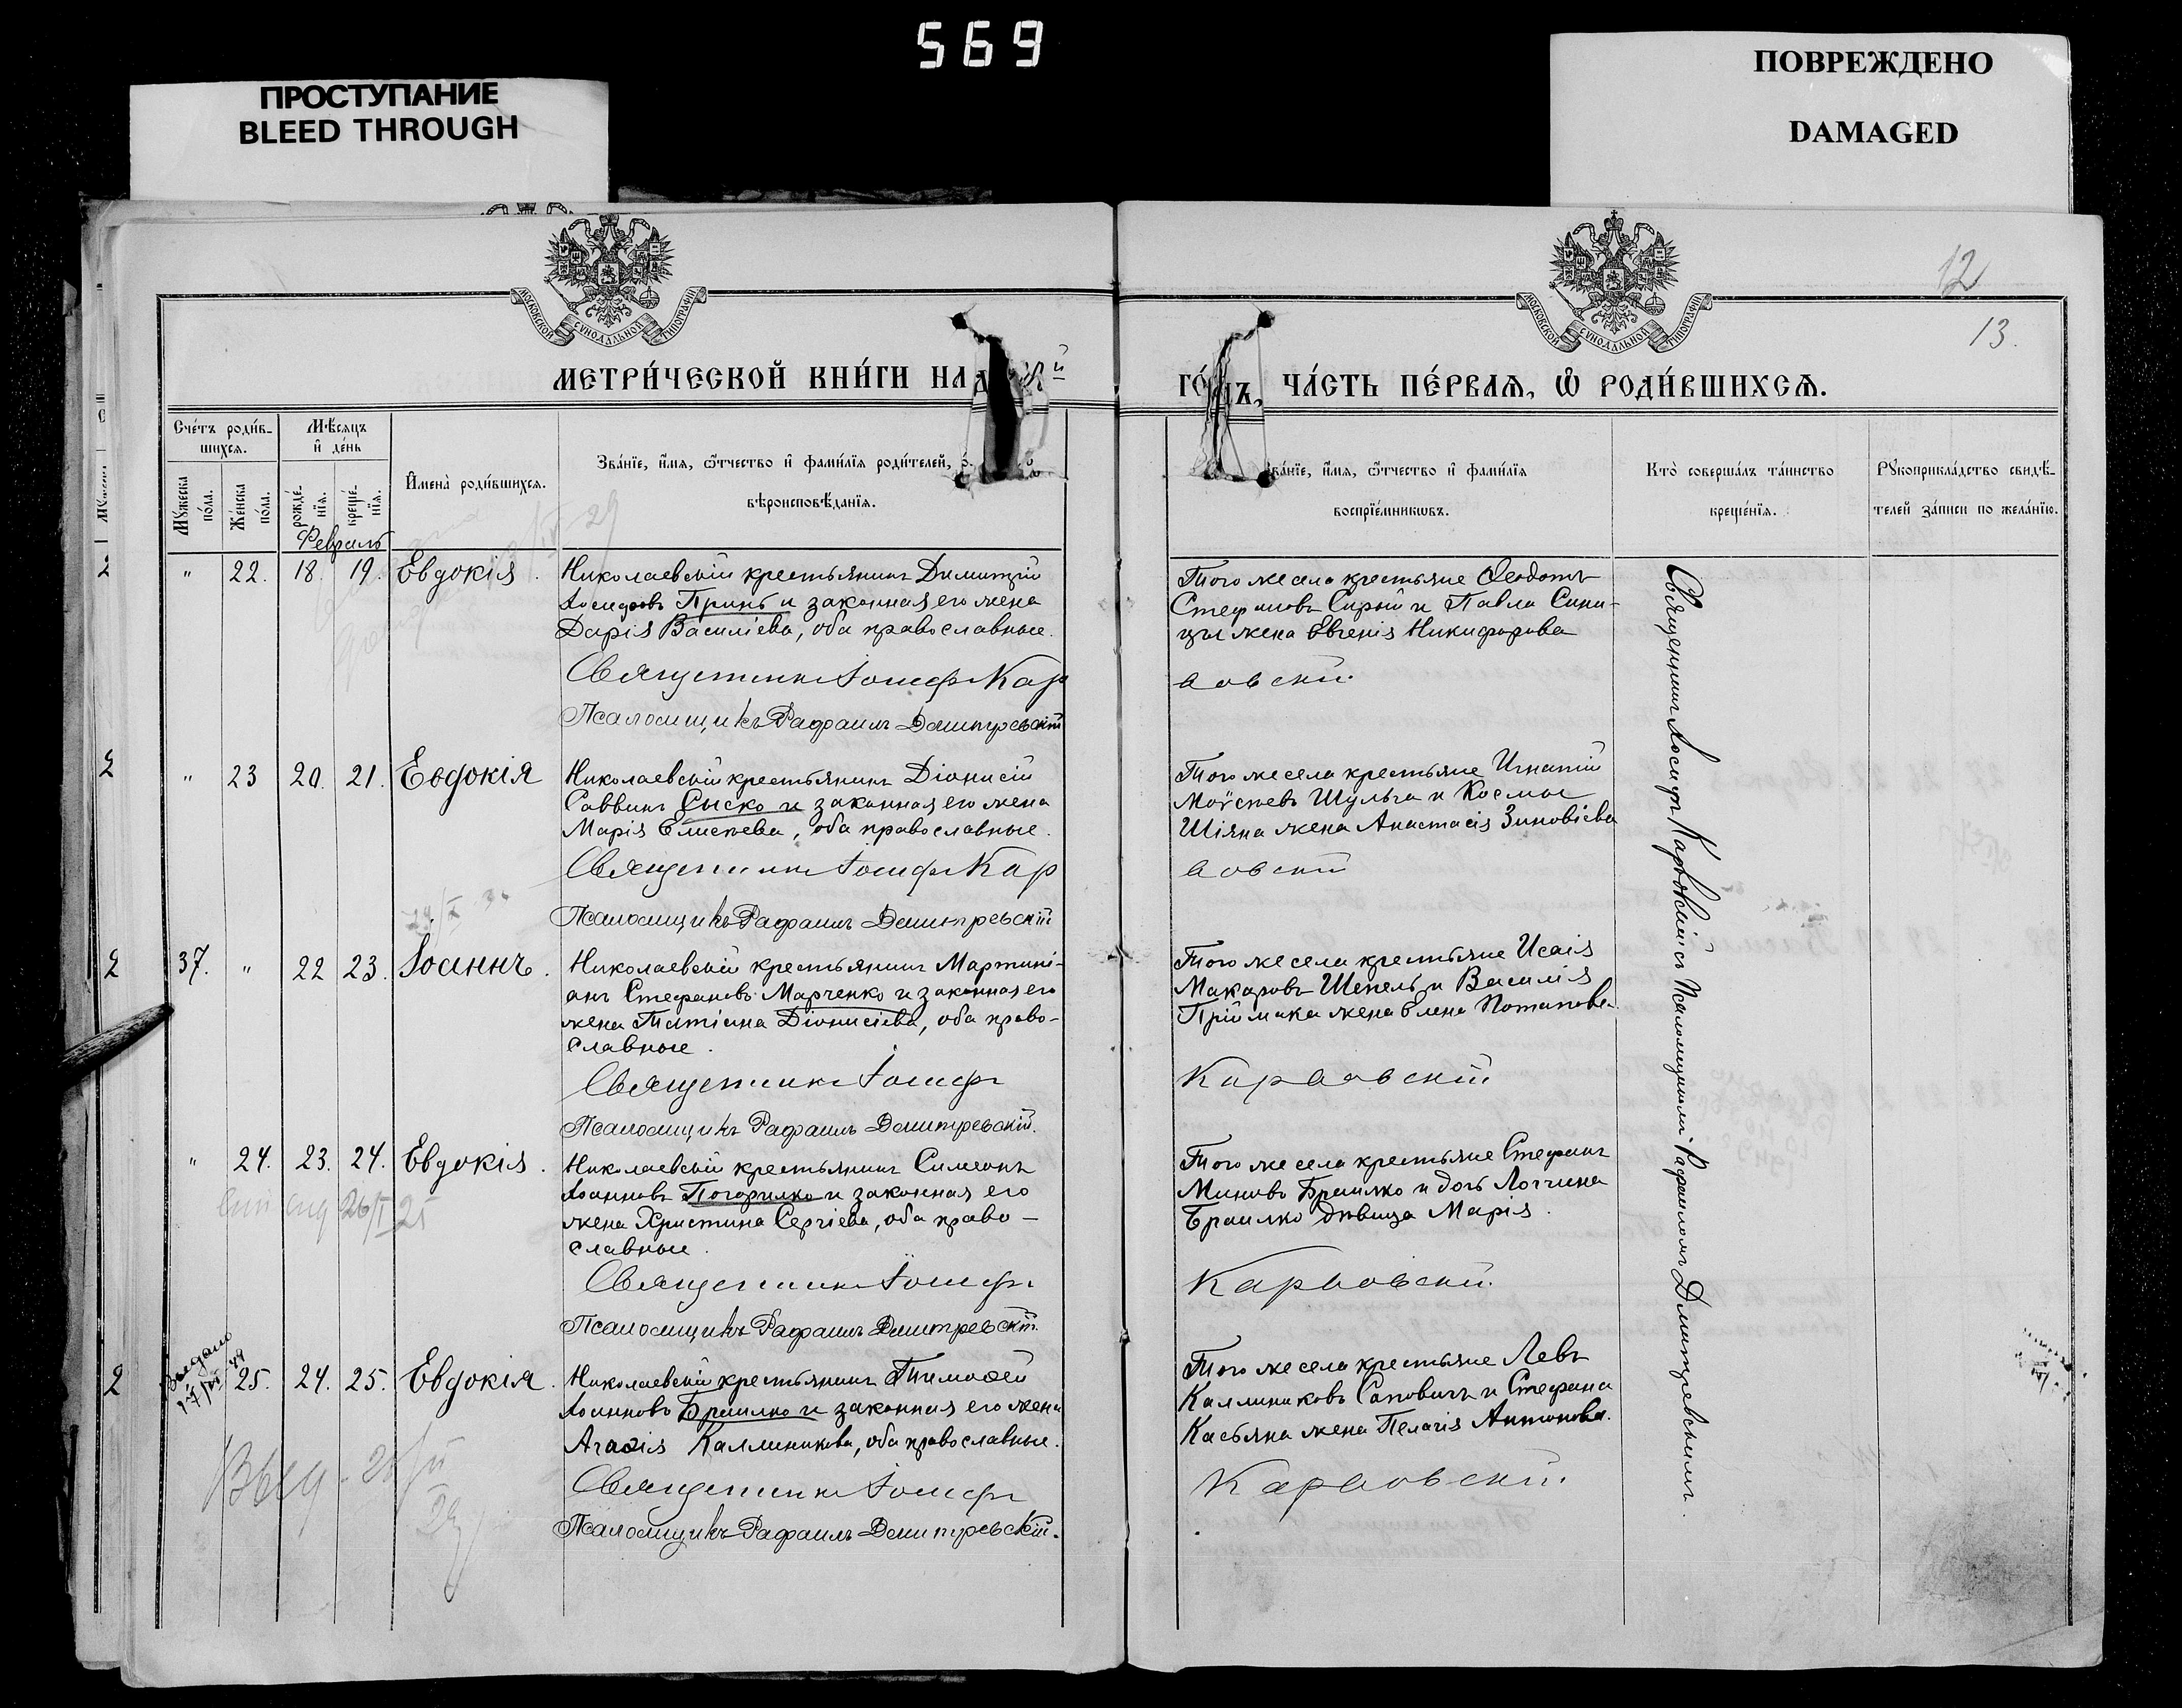 569
ПРОСТУПАНИЕ
BLEED THROUGH
ПОВРЕЖДЕНО
DAMAGED
МОСКОВСКОЙ СУНОДАЛЬНОЙ ТИПОГРАФІИ
МОСКОВСКОЙ СУНОДАЛЬНОЙ ТИПОГРАФІИ
12
13.
МЕТРИ́ЧЕСКОЙ КНИ́ГИ НА
ГО́ДЪ, ЧА́СТЬ ПЕ́РВАЯ, Ѡ҆ РОДИ́ВШИХСЯ.
Сче́тъ роди́в-
шихся.
Мѣ́сяцъ
и҆ де́нь
Мꙋ́жеска
по́ла.
Же́нска
по́ла.
рожде́-
нїя.
креще́-
нїя.
И҆мена̀ роди́вшихся.
Зва́нїе, и҆́мя, ѻ҆́тчество и҆ фами́лїя роди́телей,
вѣроисповѣ́данїя.
Зва́нїе, и҆́мя, ѻ҆́тчество и҆ фами́лїя
воспрїе́мникѡвъ.
Кто̀ соверша́лъ та́инство
креще́нїя.
Рꙋкоприкла́дство свидѣ́-
телей за́писи по жела́нїю.
Февраль
" 22. 18. 19. Евдокія.
Николаевскій крестьянинъ Димитрій
Іосифовъ Принь и законная его жена
Дарія Васильева, оба православные.
Священникъ Іосифъ Кар
Псаломщикъ Рафаилъ Дмитревскій
Того же села крестьяне Ѳеодотъ
Стефановъ Сирый и Павла Сини-
цы жена Евгенія Никифорова
повскій
" 23 20. 21. Евдокія
Николаевскій крестьянинъ Діонисій
Саввинъ Сыско и законная его жена
Марія Елисѣева, оба православные.
Священникъ Іосифъ Кар
Псаломщикъ Рафаилъ Дмитревскій
Того же села крестьяне Игнатій
Моѵсѣевъ Шульга и Космы
Шіяна жена Анастасія Зиновіева
повскій
37. " 22 23. Іоаннъ.
Николаевскій крестьянинъ Мартині-
анъ Стефановъ Марченко и законная его
жена Татіана Діонисіева, оба право-
славные.
Священникъ Іосифъ
Псаломщикъ Рафаилъ Дмитревскій.
Того же села крестьяне Исаія
Макаровъ Шепель и Василія
Пріймака жена Елена Потапова
Карповскій
" 24. 23. 24. Евдокія.
Николаевскій крестьянинъ Симеонъ
Іоанновъ Погорилко и законная его
жена Христина Сергіева, оба право-
славные.
Священникъ Іосифъ
Псаломщикъ Рафаилъ Дмитревскій.
Того же села крестьяне Стефанъ
Миновъ Браилко и дочь Логгина
Браилко дѣвица Марія.
Карповскій.
25. 24. 25. Евдокія.
Николаевскій крестьянинъ Тимоѳей
Іоанновъ Браилко и законная его жена
Агаѳія Каллиникова, оба православные.
Священникъ Іосифъ
Псаломщикъ Рафаилъ Дмитревскій.
Того же села крестьяне Левъ
Каллиниковъ Сапович и Стефана
Касьяна жена Пелагія Антонова.
Карповскій.
Священникъ Іосифъ Карповскій съ Псаломщикомъ Рафаиломъ Дмитревскимъ.